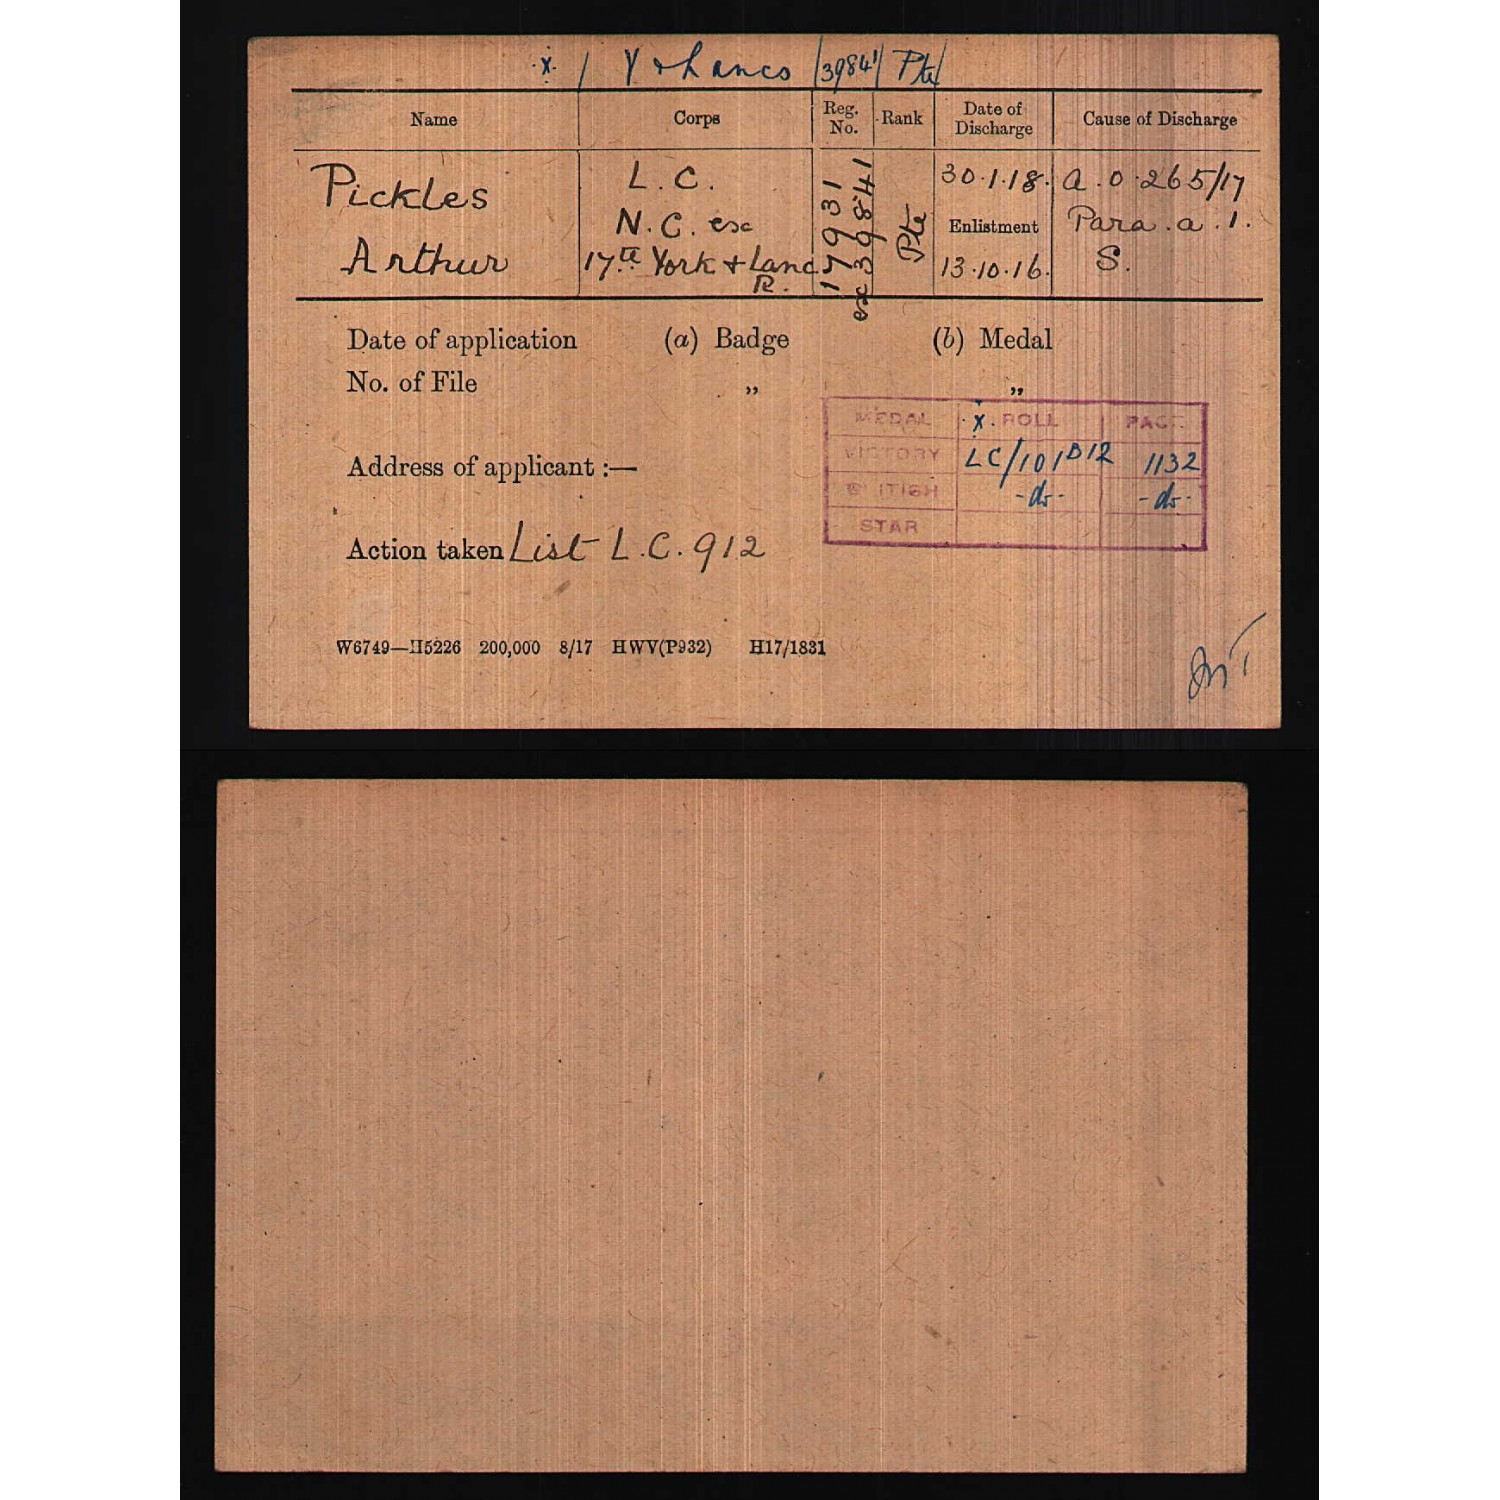 ·x· / Y & Lancs / 39841 / Pte /
Name Corps Reg. No. Rank Date of Discharge Cause of Discharge
Pickles L.C. 17931 Pte 30.1.18. a.o.265/17
N.C. esc ex 39841 Enlistment Para.a.1.
Arthur 17th York & Lanc R. 13.10.16. S.
Date of application (a) Badge (b) Medal
No. of File „ „
MEDAL ·x· ROLL PAGE
VICTORY LC/101 B12 1132
Address of applicant :—
BRITISH -do- -do-
STAR
Action taken List L.C. 912
W6749—H5226 200,000 8/17 HWV(P932) H17/1831